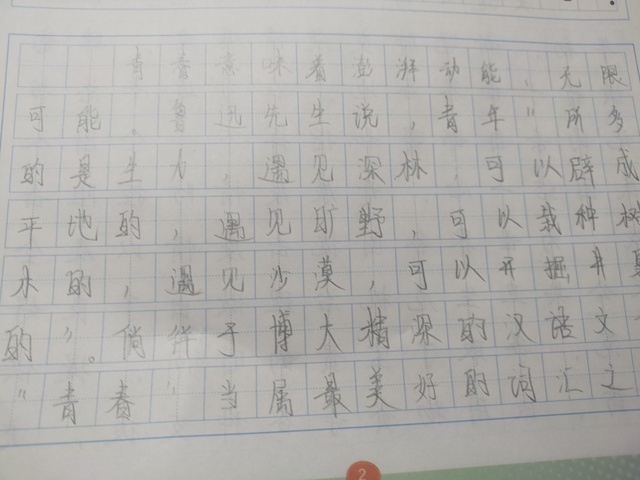 青春意味着澎湃动能，无限
可能。鲁迅先生说，青年“所多
的是生力，遇见深林，可以辟成
平地的，遇见旷野，可以栽种树
木的，遇见沙漠，可以开掘井泉
的”。徜徉于博大精深的汉语文
“青春”当属最美好的词汇之
2